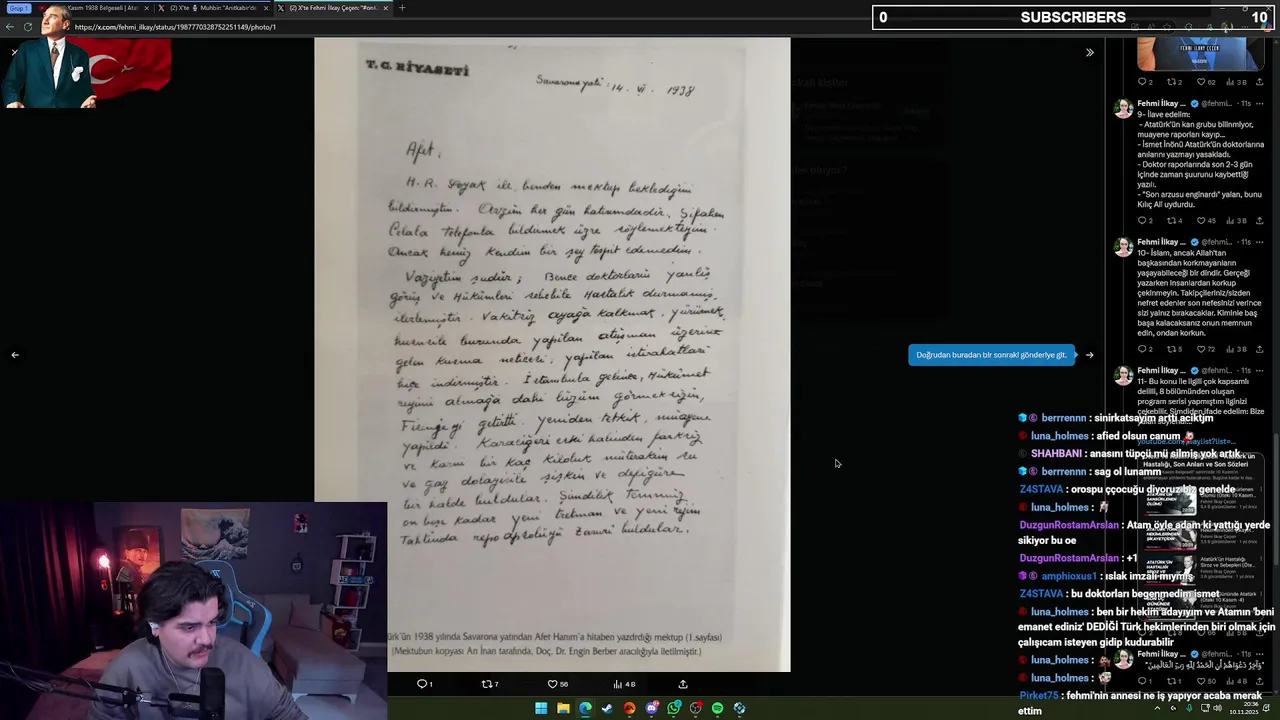 Grup 1
Kasım 1938 Belgeseli | Atatürk
(2) X'te Muhbir: "Anıtkabir'de
(2) X'te Fehmi İlkay Çeçen: "#onk
https://x.com/fehmi_ilkay/status/1987770328752251149/photo/1
0 SUBSCRIBERS 10
T. C. RİYASETİ
Savarona yatı: 14. VI. 1938
Afet,
H. R. Soyak ile benden mektup beklediğini
bildirmiştin. Arzun her gün hatırımdadır. Şifahen
Celala Telefonla bildirmek üzre söylemekteyim.
Ancak henüz kendim bir şey tespit edemedim.
Vaziyetim şudur; Bence doktorların yanlış
görüş ve Hükümleri sebebile Hastalık durmamış,
ilerlemiştir. Vakitsiz ayağa kalkmak, yürümek,
hususile burunda yapılan atuşman üzerine
gelen kusma neticesi, yapılan istirahatları
hiçe indirmiştir. İstanbula gelince, Hükümet
reyimi almağa dahi lüzum görmeksizin,
Fissenge yi getirtti. Yeniden tetkik, muayene
yapıldı. Karaciğeri eski halinden farksız
ve karnı bir kaç kiloluk müterakim su
ve gaz dolayısile şişkin ve defigüre
bir halde buldular. Şimdilik Temmuz
on beşe kadar yeni tretman ve yeni rejim
Tahtında repo absolüyü zaruri buldular.
ürk'ün 1938 yılında Savarona yatından Afet Hanım'a hitaben yazdırdığı mektup (1.sayfası)
(Mektubun kopyası Arı İnan tarafında, Doç. Dr. Engin Berber aracılığıyla iletilmiştir.)
1 7 56 4 B
Doğrudan buradan bir sonraki gönderiye git.
FEHMİ İLKAY ÇEÇEN
2 2 62 3 B
Fehmi İlkay ... @fehmi... · 11s
9- İlave edelim:
- Atatürk'ün kan grubu bilinmiyor,
muayene raporları kayıp...
- İsmet İnönü Atatürk'ün doktorlarına
anılarını yazmayı yasakladı.
- Doktor raporlarında son 2-3 gün
içinde zaman şuurunu kaybettiği
yazılı.
- "Son arzusu enginardı" yalan, bunu
Kılıç Ali uydurdu.
2 4 45 3 B
Fehmi İlkay ... @fehmi... · 11s
10- İslam, ancak Allah'tan
başkasından korkmayanların
yaşayabileceği bir dindir. Gerçeği
yazarken insanlardan korkup
çekinmeyin. Takipçileriniz/sizden
nefret edenler son nefesinizi verince
sizi yalnız bırakacaklar. Kiminle baş
başa kalacaksanız onun memnun
edin, ondan korkun.
2 5 72 3 B
Fehmi İlkay ... @fehmi... · 11s
11- Bu konu ile ilgili çok kapsamlı
delilli, 8 bölümünden oluşan
program serisi yapmıştım ilginizi
çekebilir. Şimdiden ifade edelim: Bize
berrrennn : sinirkatsayim arttı aciktjm
luna_holmes : afied olsun canum
SHAHBANI : anasını tüpçü mü silmiş yok artık
berrrennn : sag ol lunamm
Z4STAVA : orospu ççocuğu diyoruz biz genelde
luna_holmes :
DuzgunRostamArslan : Atam öyle adam ki yattığı yerde
sikiyor bu oe
DuzgunRostamArslan : +1
amphioxus1 : ıslak imzalı mıymış
Z4STAVA : bu doktorları begenmedim ismet
luna_holmes : ben bir hekim adayıyım ve Atamın 'beni
emanet ediniz' DEDİĞİ Türk hekimlerinden biri olmak için
çalışıcam isteyen gidip kudurabilir
luna_holmes :
luna_holmes :
Pirket75 : fehmi'nin annesi ne iş yapıyor acaba merak
ettim
Fehmi İlkay ... @fehmi... · 11s
1 1 50 4 B
20:36
10.11.2025